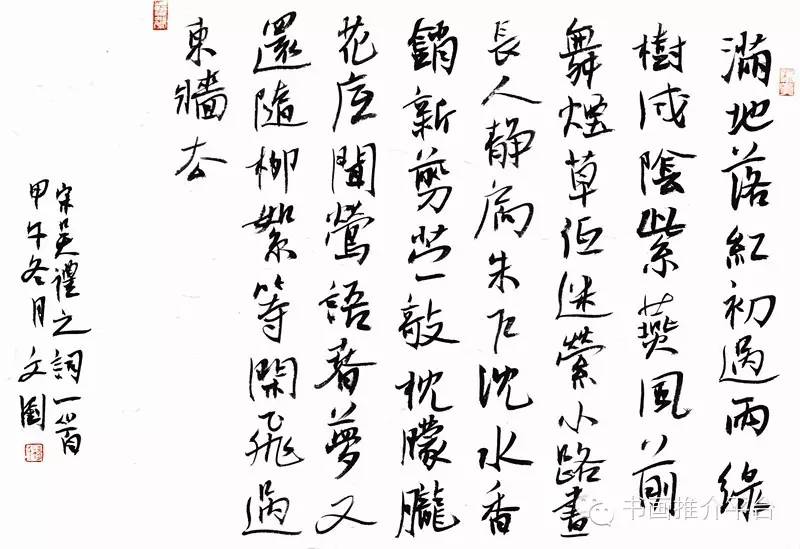 滿地落紅初過雨綠
樹成陰紫燕風前
舞煙草低迷縈小路晝
長人靜扃朱戶沈水香
銷新剪苧敲枕朦朧
花底聞鶯語春夢又
還隨柳絮等閑飛過
東牆去
宋吳禮之詞一首
甲午冬月文
书画推介平台